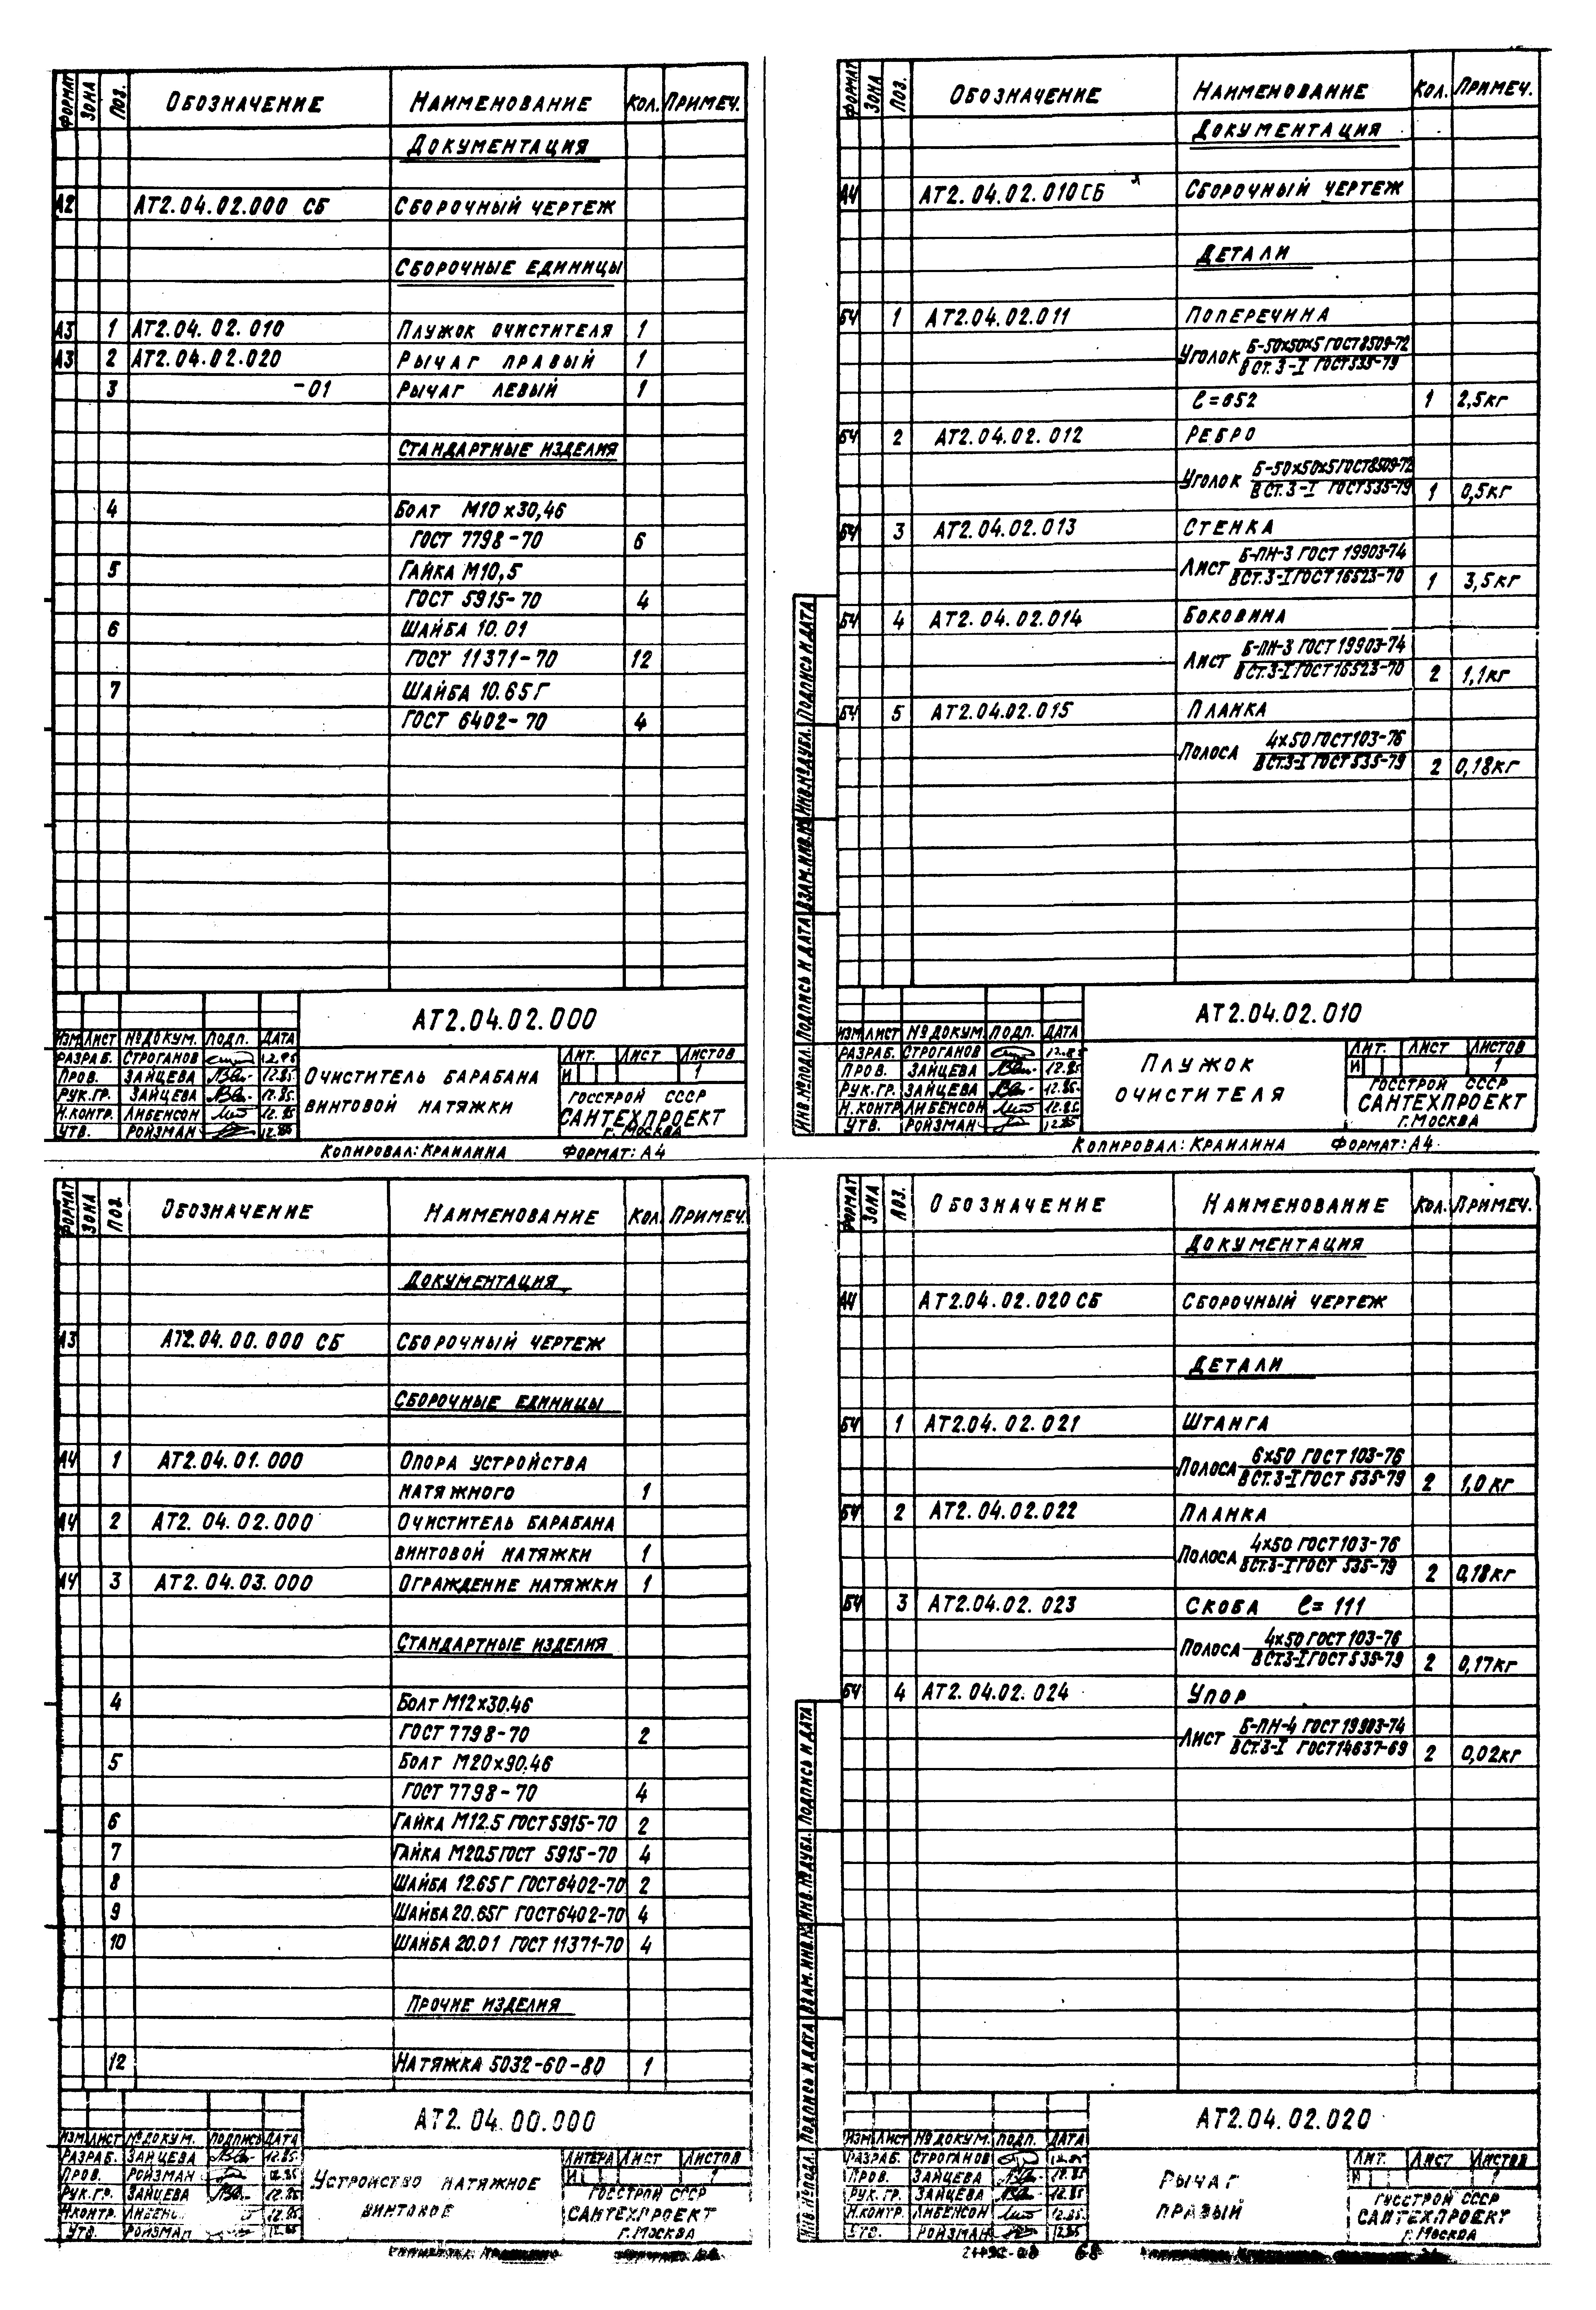 ФОРМАТ ЗОНА ПОЗ. ОБОЗНАЧЕНИЕ НАИМЕНОВАНИЕ КОЛ. ПРИМЕЧ.
ДОКУМЕНТАЦИЯ
А2 АТ2.04.02.000 СБ СБОРОЧНЫЙ ЧЕРТЕЖ
СБОРОЧНЫЕ ЕДИНИЦЫ
А3 1 АТ2.04.02.010 ПЛУЖОК ОЧИСТИТЕЛЯ 1
А3 2 АТ2.04.02.020 РЫЧАГ ПРАВЫЙ 1
3 -01 РЫЧАГ ЛЕВЫЙ 1
СТАНДАРТНЫЕ ИЗДЕЛИЯ
4 БОЛТ М10×30,46
ГОСТ 7798-70 6
5 ГАЙКА М10,5
ГОСТ 5915-70 4
6 ШАЙБА 10.01
ГОСТ 11371-70 12
7 ШАЙБА 10.65Г
ГОСТ 6402-70 4
АТ2.04.02.000
ИЗМ ЛИСТ № ДОКУМ. ПОДП. ДАТА
РАЗРАБ. СТРОГАНОВ 12.85
ПРОВ. ЗАЙЦЕВА 12.85
РУК.ГР. ЗАЙЦЕВА 12.85
Н.КОНТР. ЛИБЕНСОН 12.85
УТВ. РОЙЗМАН 12.85
ОЧИСТИТЕЛЬ БАРАБАНА
ВИНТОВОЙ НАТЯЖКИ
ЛИТ. ЛИСТ ЛИСТОВ
И 1
ГОССТРОЙ СССР
САНТЕХПРОЕКТ
Г. МОСКВА
КОПИРОВАЛ: КРАИЛИНА ФОРМАТ: А4
ФОРМАТ ЗОНА ПОЗ. ОБОЗНАЧЕНИЕ НАИМЕНОВАНИЕ КОЛ. ПРИМЕЧ.
ДОКУМЕНТАЦИЯ
А4 АТ2.04.02.010 СБ СБОРОЧНЫЙ ЧЕРТЕЖ
ДЕТАЛИ
БЧ 1 АТ2.04.02.011 ПОПЕРЕЧИНА
УГОЛОК Б-50×50×5 ГОСТ 8509-72
В СТ.3-I ГОСТ 535-79
ℓ=652 1 2,5кг
БЧ 2 АТ2.04.02.012 РЕБРО
УГОЛОК Б-50×50×5 ГОСТ 8509-72
В СТ.3-I ГОСТ 535-79 1 0,5кг
БЧ 3 АТ2.04.02.013 СТЕНКА
ЛИСТ Б-ПН-3 ГОСТ 19903-74
В СТ.3-I ГОСТ 16523-70 1 3,5кг
БЧ 4 АТ2.04.02.014 БОКОВИНА
ЛИСТ Б-ПН-3 ГОСТ 19903-74
В СТ.3-I ГОСТ 16523-70 2 1,1кг
БЧ 5 АТ2.04.02.015 ПЛАНКА
ПОЛОСА 4×50 ГОСТ 103-76
В СТ.3-I ГОСТ 535-79 2 0,18кг
ИНВ.№ ПОДЛ. ПОДПИСЬ И ДАТА ВЗАМ.ИНВ.№ ИНВ.№ ДУБЛ. ПОДПИСЬ И ДАТА
АТ2.04.02.010
ИЗМ ЛИСТ № ДОКУМ. ПОДП. ДАТА
РАЗРАБ. СТРОГАНОВ 12.85
ПРОВ. ЗАЙЦЕВА 12.85
РУК.ГР. ЗАЙЦЕВА 12.85
Н.КОНТР. ЛИБЕНСОН 12.85
УТВ. РОЙЗМАН 12.85
ПЛУЖОК
ОЧИСТИТЕЛЯ
ЛИТ. ЛИСТ ЛИСТОВ
И 1
ГОССТРОЙ СССР
САНТЕХПРОЕКТ
Г. МОСКВА
КОПИРОВАЛ: КРАИЛИНА ФОРМАТ: А4
ФОРМАТ ЗОНА ПОЗ. ОБОЗНАЧЕНИЕ НАИМЕНОВАНИЕ КОЛ. ПРИМЕЧ.
ДОКУМЕНТАЦИЯ
А3 АТ2.04.00.000 СБ СБОРОЧНЫЙ ЧЕРТЕЖ
СБОРОЧНЫЕ ЕДИНИЦЫ
А4 1 АТ2.04.01.000 ОПОРА УСТРОЙСТВА
НАТЯЖНОГО 1
А4 2 АТ2.04.02.000 ОЧИСТИТЕЛЬ БАРАБАНА
ВИНТОВОЙ НАТЯЖКИ 1
А4 3 АТ2.04.03.000 ОГРАЖДЕНИЕ НАТЯЖКИ 1
СТАНДАРТНЫЕ ИЗДЕЛИЯ
4 БОЛТ М12×30.46
ГОСТ 7798-70 2
5 БОЛТ М20×90.46
ГОСТ 7798-70 4
6 ГАЙКА М12.5 ГОСТ 5915-70 2
7 ГАЙКА М20.5 ГОСТ 5915-70 4
8 ШАЙБА 12.65Г ГОСТ 6402-70 2
9 ШАЙБА 20.65Г ГОСТ 6402-70 4
10 ШАЙБА 20.01 ГОСТ 11371-70 4
ПРОЧИЕ ИЗДЕЛИЯ
12 НАТЯЖКА 5032-60-80 1
АТ2.04.00.000
ИЗМ ЛИСТ № ДОКУМ. ПОДПИСЬ ДАТА
РАЗРАБ. ЗАЙЦЕВА 12.85
ПРОВ. РОЙЗМАН 12.85
РУК.ГР. ЗАЙЦЕВА 12.85
Н.КОНТР. 12.85
УТВ. РОЙЗМАН
УСТРОЙСТВО НАТЯЖНОЕ
ВИНТОВОЕ
ЛИТЕРА ЛИСТ ЛИСТОВ
И 1
ГОССТРОЙ СССР
САНТЕХПРОЕКТ
Г. МОСКВА
ФОРМАТ ЗОНА ПОЗ. ОБОЗНАЧЕНИЕ НАИМЕНОВАНИЕ КОЛ. ПРИМЕЧ.
ДОКУМЕНТАЦИЯ
А4 АТ2.04.02.020 СБ СБОРОЧНЫЙ ЧЕРТЕЖ
ДЕТАЛИ
БЧ 1 АТ2.04.02.021 ШТАНГА
ПОЛОСА 6×50 ГОСТ 103-76
В СТ.3-I ГОСТ 535-79 2 1,0 кг
БЧ 2 АТ2.04.02.022 ПЛАНКА
ПОЛОСА 4×50 ГОСТ 103-76
В СТ.3-I ГОСТ 535-79 2 0,18кг
БЧ 3 АТ2.04.02.023 СКОБА ℓ=111
ПОЛОСА 4×50 ГОСТ 103-76
В СТ.3-I ГОСТ 535-79 2 0,17кг
БЧ 4 АТ2.04.02.024 УПОР
ЛИСТ Б-ПН-4 ГОСТ 19903-74
В СТ.3-I ГОСТ 14637-69 2 0,02кг
ИНВ.№ ПОДЛ. ПОДПИСЬ И ДАТА ВЗАМ.ИНВ.№ ИНВ.№ ДУБЛ. ПОДПИСЬ И ДАТА
АТ2.04.02.020
ИЗМ ЛИСТ № ДОКУМ. ПОДП. ДАТА
РАЗРАБ. СТРОГАНОВ 12.85
ПРОВ. ЗАЙЦЕВА 12.85
РУК.ГР. ЗАЙЦЕВА 12.85
Н.КОНТР. ЛИБЕНСОН 12.85
УТВ. РОЙЗМАН 12.85
РЫЧАГ
ПРАВЫЙ
ЛИТ. ЛИСТ ЛИСТОВ
И 1
ГОССТРОЙ СССР
САНТЕХПРОЕКТ
Г. МОСКВА
68